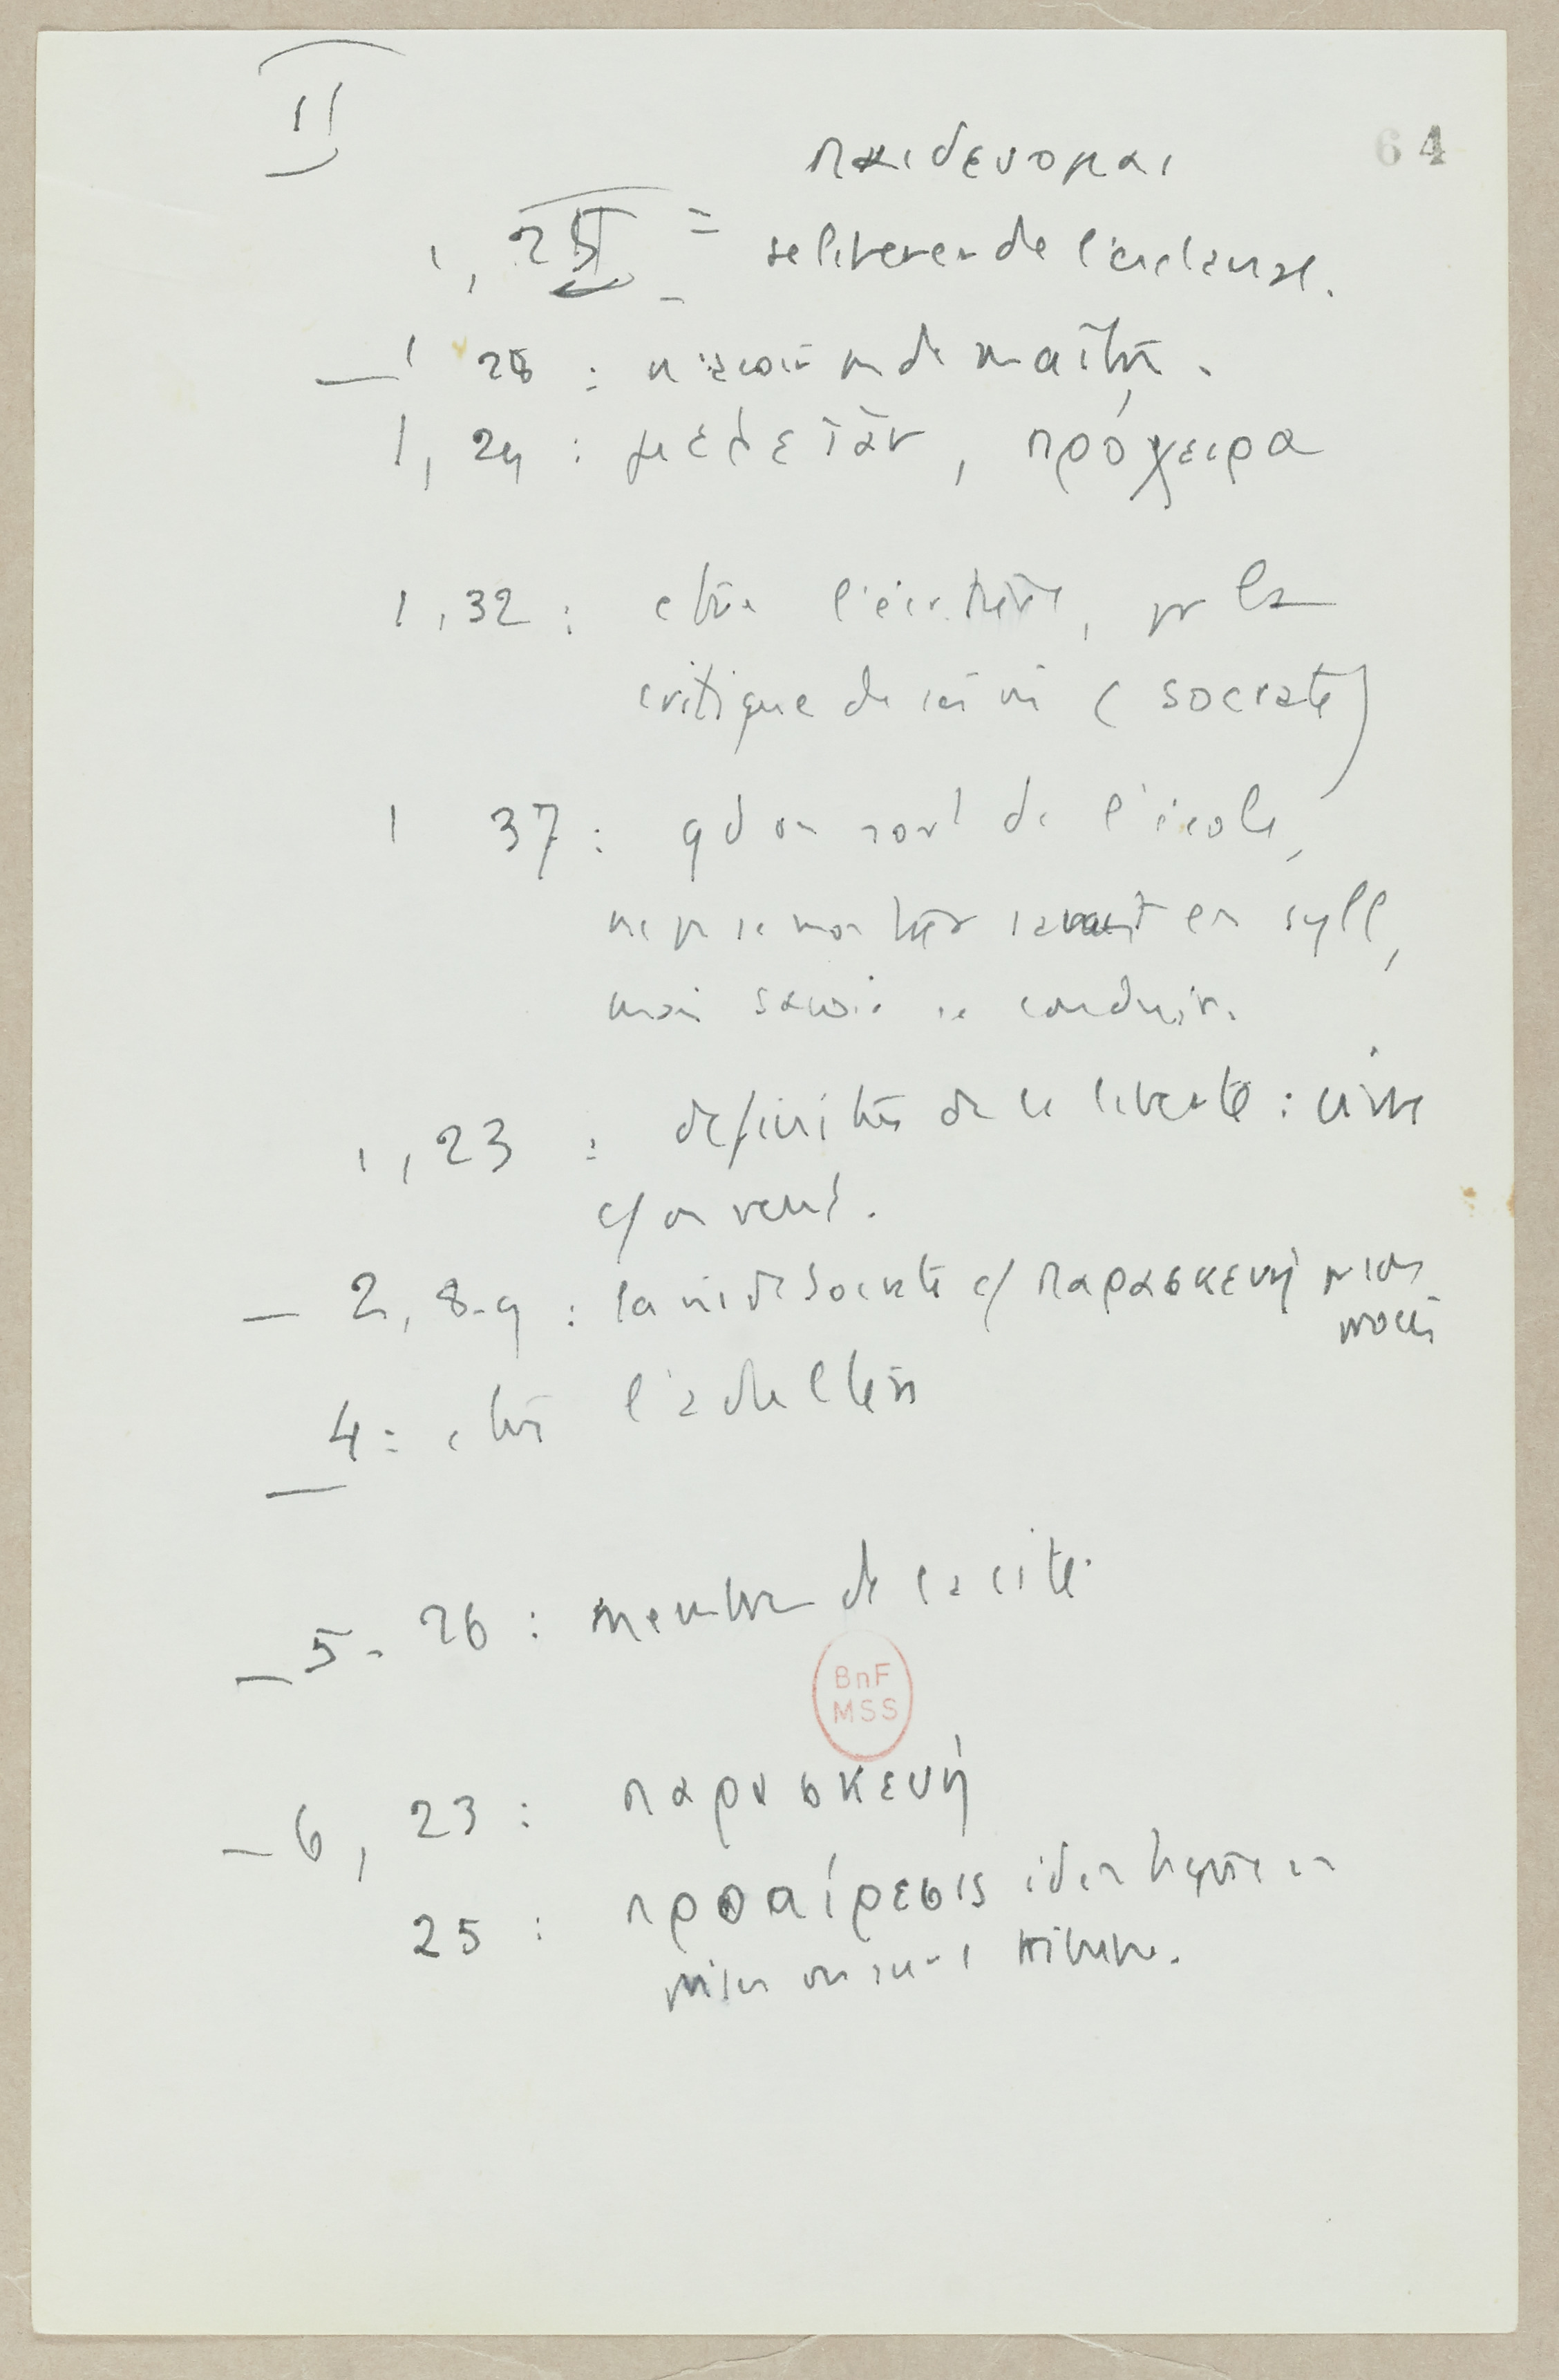 II
64
παιδευομαι
1, 25 = se liberer de l'esclavage.
— 1 28 : n'avoir pas de maître.
1, 29 : μελετᾶν, πρόχειρα
1, 32 : contre l'écriture, pr la
critique de soi (Socrate)
1 37 : qd on sort de l'école,
ne pas se montrer savant en syll,
mais savoir se conduire.
1, 23 : definition de la liberté : vivre
c/ on veut.
— 2, 8-9 : la vie de Socrate c/ παρασκευή
procès
— 4 : contre l'adultère
— 5 - 26 : membre de la cité.
BnF
MSS
— 6, 23 : παρασκευή
25 : προαίρεσις identique en
prison